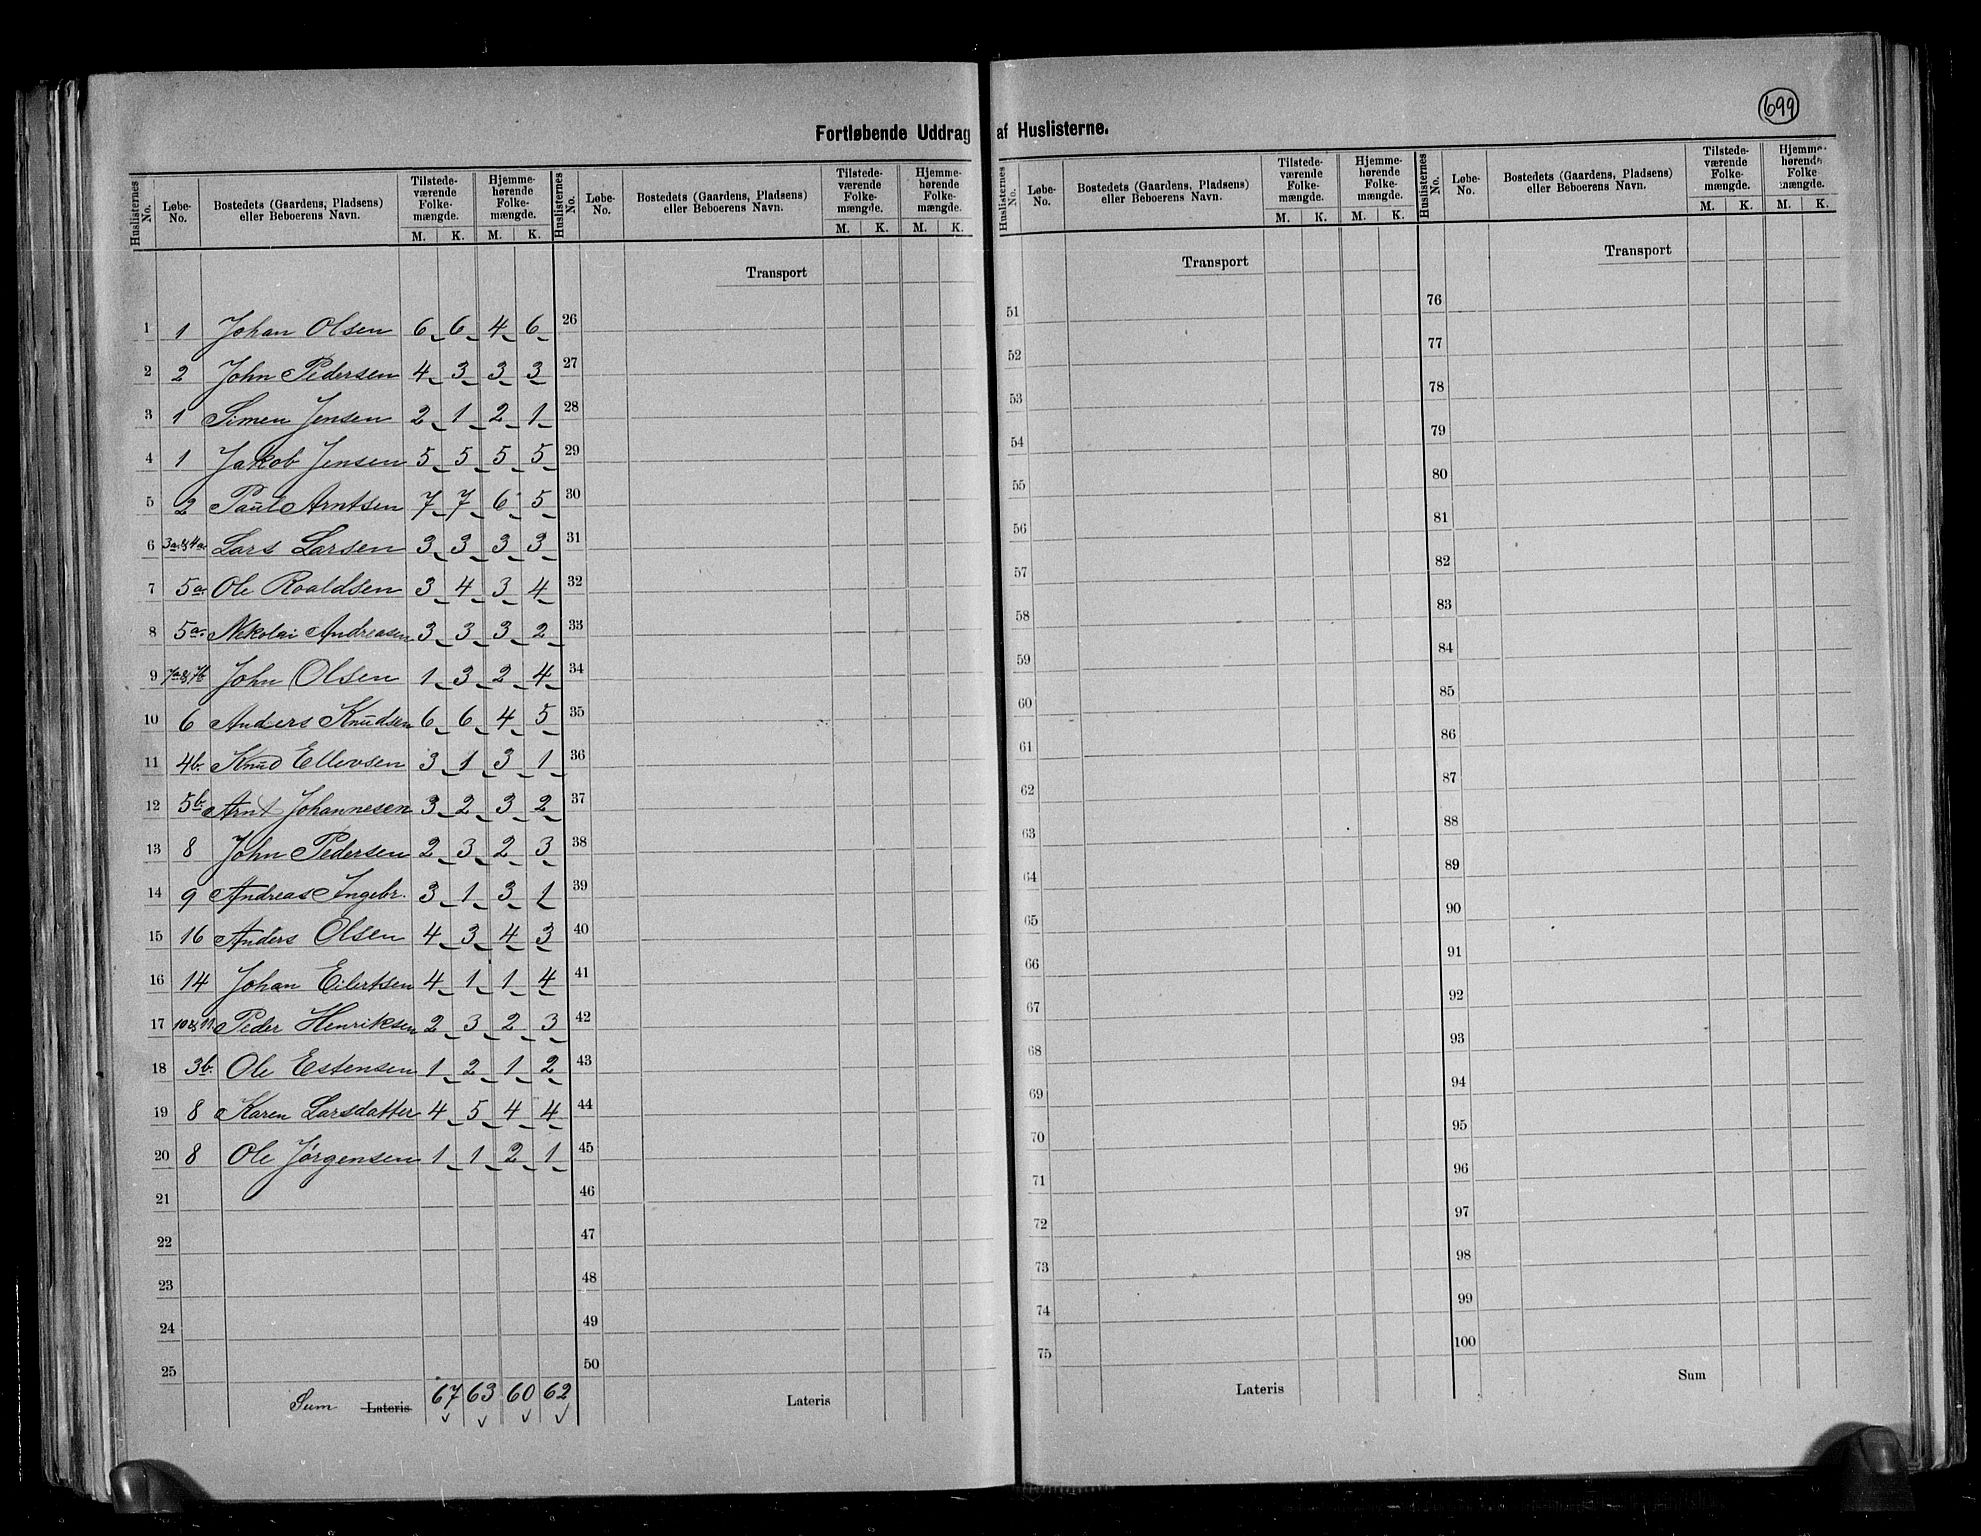 699
Fortløbende Uddrag af Huslisterne.
Huslisternes No. Løbe-No. Bostedets (Gaardens, Pladsens) eller Beboerens Navn. Tilstedeværende Folkemængde. M. K. Hjemmehørende Folkemængde. M. K.
Huslisternes No. Løbe-No. Bostedets (Gaardens, Pladsens) eller Beboerens Navn. Tilstedeværende Folkemængde. M. K. Hjemmehørende Folkemængde. M. K.
Huslisternes No. Løbe-No. Bostedets (Gaardens, Pladsens) eller Beboerens Navn. Tilstedeværende Folkemængde. M. K. Hjemmehørende Folkemængde. M. K.
Huslisternes No. Løbe-No. Bostedets (Gaardens, Pladsens) eller Beboerens Navn. Tilstedeværende Folkemængde. M. K. Hjemmehørende Folkemængde. M. K.
Transport Transport Transport
1 1 Johan Olsen 6 6 4 6 26 51 76
2 2 John Pedersen 4 3 3 3 27 52 77
3 1 Simen Jensen 2 1 2 1 28 53 78
4 1 Jakob Jensen 5 5 5 5 29 54 79
5 2 Paul Arntsen 7 7 6 5 30 55 80
6 3a & 4a Lars Larsen 3 3 3 3 31 56 81
7 5a. Ole Roaldsen 3 4 3 4 32 57 82
8 5a. Nikolai Andreasen 3 3 3 2 33 58 83
9 7a & 7b John Olsen 1 3 2 4 34 59 84
10 6 Anders Knudsen 6 6 4 5 35 60 85
11 4b. Knud Ellevsen 3 1 3 1 36 61 86
12 5b Arnt Johannesen 3 2 3 2 37 62 87
13 8 John Pedersen 2 3 2 3 38 63 88
14 9 Andreas Ingebr. 3 1 3 1 39 64 89
15 16 Anders Olsen 4 3 4 3 40 65 90
16 14 Johan Eilertsen 4 1 1 4 41 66 91
17 10 & 11 Peder Henriksen 2 3 2 3 42 67 92
18 3b. Ole Estensen 1 2 1 2 43 68 93
19 8 Karen Larsdatter 4 5 4 4 44 69 94
20 8 Ole Jørgensen 1 1 2 1 45 70 95
21 46 71 96
22 47 72 97
23 48 73 98
24 49 74 99
25 50 75 100
Sum Lateris 67 63 60 62 Lateris Lateris Sum